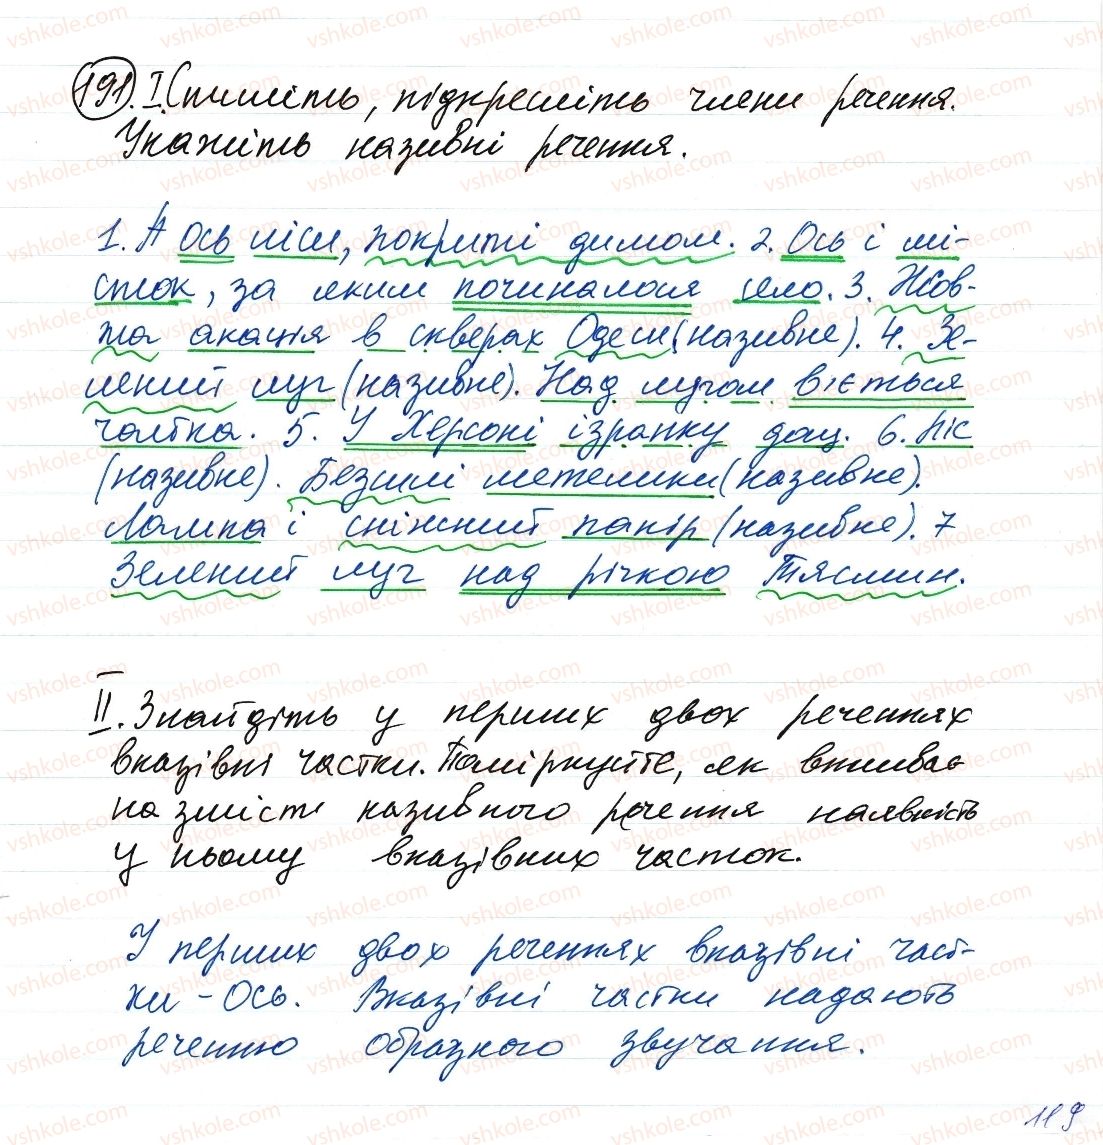 191. I Спишіть, підкресліть члени речення.
Укажіть називні речення.
1. А ось ліси, покриті димом. 2. Ось і мі-
сток, за яким починалося село. 3. Жов-
та акація в скверах Одеси (називне). 4. Зе-
лений луг (називне). Над лугом в'ється
чайка. 5. У Херсоні ізранку дощ. 6. Ліс
(називне). Безсилі метелики (називне).
Лампа і сніжний папір (називне). 7
Зелений луг над річкою Тясмин.
II. Знайдіть у перших двох реченнях
вказівні частки. Поміркуйте, як впливає
на зміст називного речення наявність
у ньому вказівних часток.
У перших двох реченнях вказівні част-
ки - Ось. Вказівні частки надають
реченню образного звучання.
119